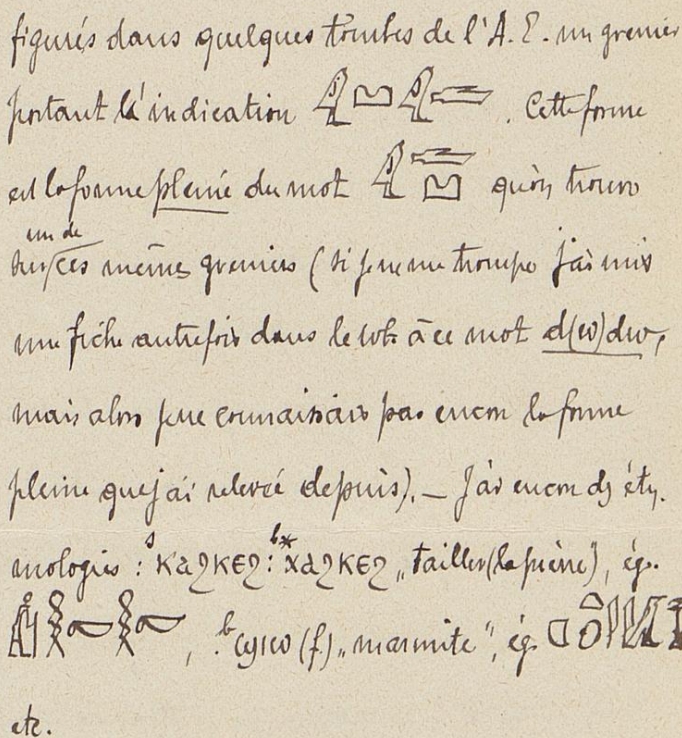 figurés dans quelques tombes de l'A. E. un grenier
portant l'indication . Cette forme
est la forme pleine du mot qu'on trouve
un de
sur ces même greniers (si je ne me trompe j'ai mis
une fiche autrefois dans le wb à ce mot d(w)dw,
mais alors je ne connaissais pas encore la forme
pleine que j'ai relevée depuis). — J'ai encore des éty-
mologies : s ⲕⲁϩⲕⲉϩ : b* ⲭⲁϩⲕⲉϩ „tailler (la pierre), ég.
, b (f) „marmite", ég.
etc.